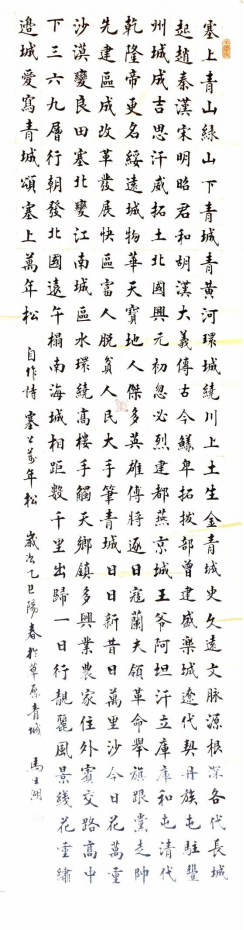 塞上青山綠山下青城青黃河環城繞川上土生金青城史久遠文脈源根深各代長城
起趙秦漢宋明昭君和胡漢大義傳古今鱻卑拓拔部曾建盛樂城遼代契丹族屯駐豐
州城成吉思汗威拓土北國興元初忽必烈建都燕京城王爺阿坦汗立庫庫和屯清代
乾隆帝更名綏遠城物華天寶地人傑多英雄傅將逐日寇蘭夫領革命舉旗跟黨走帥
先建區成改革發展快區富人脫貧人民大手筆青城日日新昔日萬里沙今日花萬重
沙漠變良田塞北變江南城區水環繞高樓手觸天鄉鎮多興業農家住外賓交路高中
下三六九層行朝發北國遠午榻南海城相距數千里出歸一日行靚麗風景綫花重繡
邊城愛寫青城頌塞上萬年松 自作詩 塞上萬年松 歲次乙巳陽春於草原青城 馬生